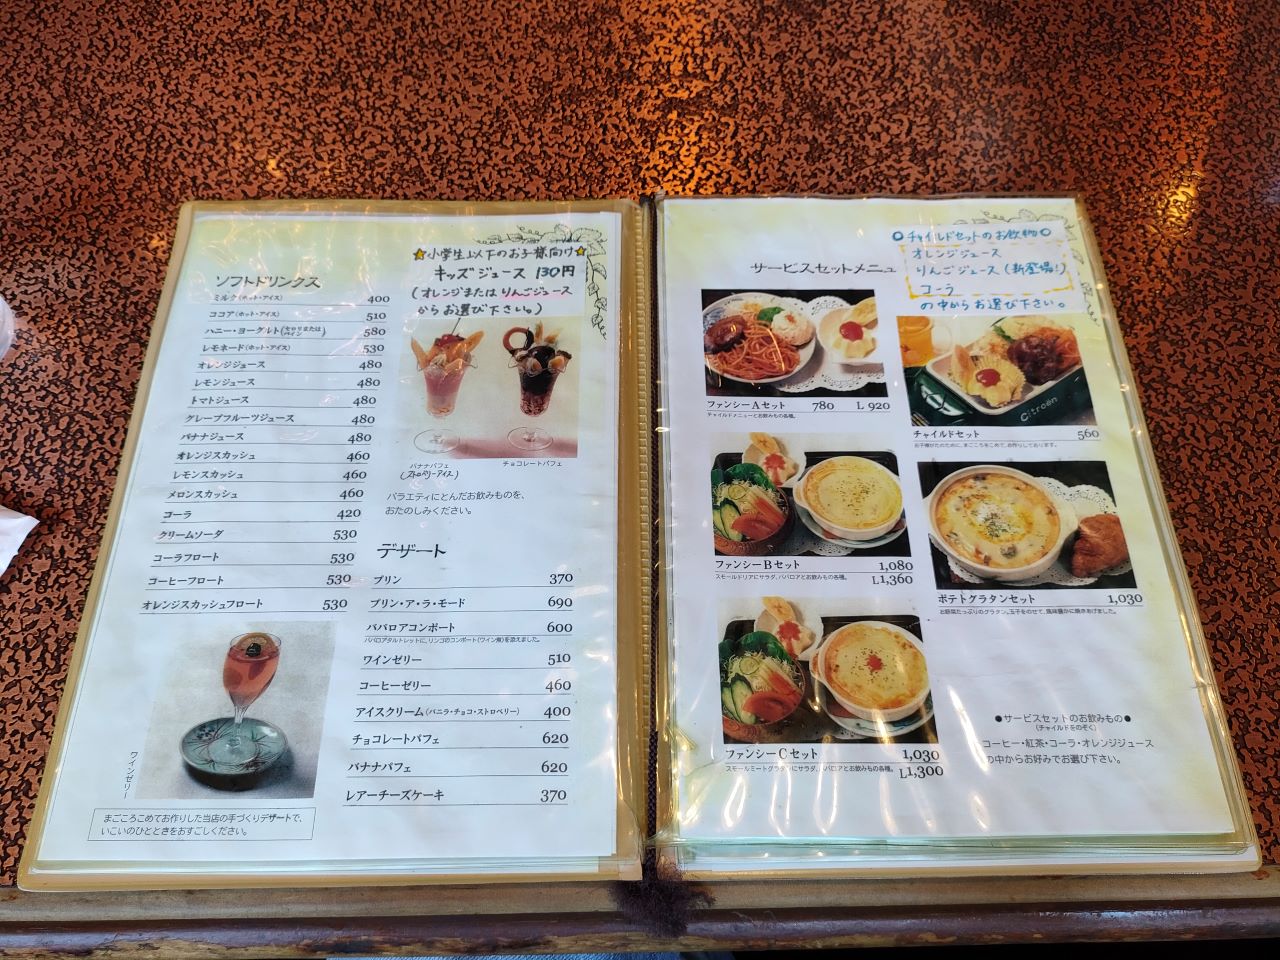 ソフトドリンクス
ミルク(ホット・アイス) 400
ココア(ホット・アイス) 510
ハニー・ヨーグルト 580
レモネード(ホット・アイス) 530
オレンジジュース 480
レモンジュース 480
トマトジュース 480
グレープフルーツジュース 480
バナナジュース 480
オレンジスカッシュ 460
レモンスカッシュ 460
メロンスカッシュ 460
コーラ 420
クリームソーダ 530
コーラフロート 530
コーヒーフロート 530
オレンジスカッシュフロート 530
ワインゼリー
まごころこめてお作りした当店の手づくりデザートで、
いこいのひとときをおすごしください。
★小学生以下のお子様向け★
キッズジュース 130円
(オレンジまたはりんごジュース
からお選び下さい。)
バナナパフェ
(ストロベリーアイス)
チョコレートパフェ
バラエティにとんだお飲みものを、
おたのしみください。
デザート
プリン 370
プリン・ア・ラ・モード 690
ババロアコンポート 600
ババロアタルトレットに、リンゴのコンポート(ワイン煮)を添えました。
ワインゼリー 510
コーヒーゼリー 460
アイスクリーム(バニラ・チョコ・ストロベリー) 400
チョコレートパフェ 620
バナナパフェ 620
レアーチーズケーキ 370
サービスセットメニュー
ファンシーAセット 780 L 920
チャイルドメニューとお飲みもの各種。
ファンシーBセット 1,080
スモールドリアにサラダ、ババロアとお飲みもの各種。 L1,360
ファンシーCセット 1,030
スモールミートグラタンにサラダ、ババロアとお飲みもの各種。 L1,300
○チャイルドセットのお飲物○
オレンジジュース
りんごジュース(新登場!)
コーラ
の中からお選び下さい。
Citroën
チャイルドセット 560
お子様がたのために、まごころをこめて、お作りしております。
ポテトグラタンセット 1,030
お野菜たっぷりのグラタン。玉子をのせて、風味豊かに焼きあげました。
●サービスセットのお飲みもの●
(チャイルドをのぞく)
コーヒー・紅茶・コーラ・オレンジジュース
の中からお好みでお選び下さい。